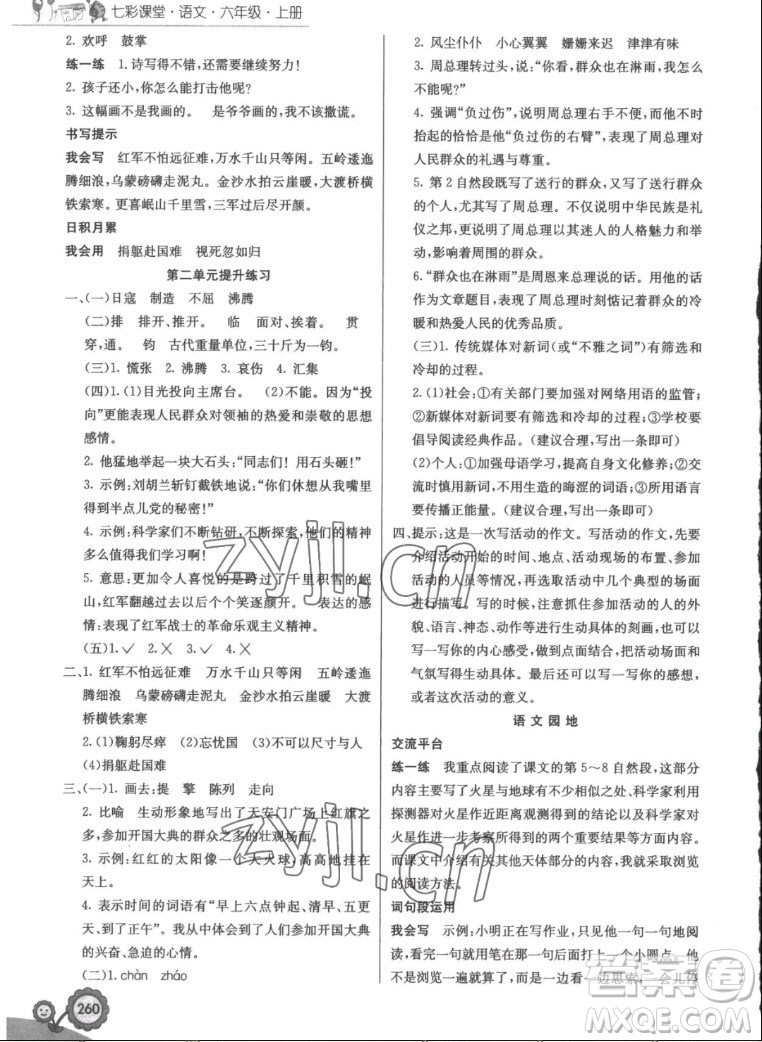 七彩课堂·语文·六年级·上册
2. 欢呼 鼓掌
练一练 1. 诗写得不错,还需要继续努力!
2. 孩子还小,你怎么能打击他呢?
3. 这幅画不是我画的。 是爷爷画的,我不该撒谎。
书写提示
我会写 红军不怕远征难,万水千山只等闲。五岭逶迤
腾细浪,乌蒙磅礴走泥丸。金沙水拍云崖暖,大渡桥横
铁索寒。更喜岷山千里雪,三军过后尽开颜。
日积月累
我会用 捐躯赴国难 视死忽如归
第二单元提升练习
一、(一)日寇 制造 不屈 沸腾
(二)排 排开、推开。 临 面对、挨着。 贯
穿,通。 钧 古代重量单位,三十斤为一钧。
(三)1. 慌张 2. 沸腾 3. 哀伤 4. 汇集
(四)1. (1)目光投向主席台。 (2)不能。因为“投
向”更能表现人民群众对领袖的热爱和崇敬的思想
感情。
2. 他猛地举起一块大石头:“同志们! 用石头砸!”
3. 示例:刘胡兰斩钉截铁地说:“你们休想从我嘴里
得到半点儿党的秘密!”
4. 示例:科学家们不断钻研,不断探索,他们的精神
多么值得我们学习啊!
5. 意思:更加令人喜悦的是跨过了千里积雪的岷
山,红军翻越过去以后个个笑逐颜开。表达的感
情:表现了红军战士的革命乐观主义精神。
(五)1. ✓ 2. ✕ 3. ✓ 4. ✓
二、1. 红军不怕远征难 万水千山只等闲 五岭逶迤
腾细浪 乌蒙磅礴走泥丸 金沙水拍云崖暖 大渡
桥横铁索寒
2. (1)鞠躬尽瘁 (2)忘忧国 (3)可以尺寸与人
(4)捐躯赴国难
三、(一)1. 画去:提 擎 陈列 走向
2. 比喻 生动形象地写出了天安门广场上红旗之
多,参加开国大典的群众之多的壮观场面。
3. 示例:红红的太阳像一个大火球,高高地挂在
天上。
4. 表示时间的词语有“早上六点钟起、清早、五更
天、到了正午”。我从中体会到了人们参加开国大典
的兴奋、急迫的心情。
(二)1. chàn zháo
260
2. 风尘仆仆 小心翼翼 姗姗来迟 津津有味
3. 周总理转过头,说:“你看,群众也在淋雨,我怎么
不能呢?”
4. 强调“负过伤”,说明周总理右手不便,而他时时
抬起的恰恰是他“负过伤的右臂”,表现了周总理对
人民群众的礼遇与尊重。
5. 第 2 自然段既写了送行的群众,又写了送群众
的个人,尤其写了周总理。不仅说明中华民族是礼
仪之邦,更写出了周总理以其迷人的人格魅力,深刻
影响着周围的群众。
6. “群众也在淋雨”是周恩来总理说的话,用这句话
作为文章题目,表现了周总理时刻惦记着群众的冷
暖和热爱人民的优秀品质。
(三)1. 传统媒体对新词(或“不雅之词”)有筛选和
冷却的过程。
2. (1)社会:①有关部门要加强对网络用语的监管;
②新媒体对新词要有筛选和冷却的过程;③学校要
倡导阅读经典作品。(建议合理,写出一条即可)
(2)个人:①加强母语学习,提高自身文化修养;②交
流时慎用不规范的、生造的晦涩的词语;③写作中
要传播正能量。(建议合理,写出一条即可)
四、提示:这是一次写活动的作文。写活动的作文,要先
介绍活动开始的时间、地点、活动现场的布置、参加
活动的人员等情况,再选取活动中几个典型的场面
进行描写。写的过程中,注意抓住参加活动的人的外
貌、语言、神态、动作等进行生动具体的刻画,也可以
写一写你的内心感受,使得文章生动具体,活动场面和
气氛写得生动、具体。最后可以写一写你的感想,
或者这次活动的意义。
语文园地
交流平台
练一练 我重点阅读了课文的第 5～8 自然段,这部分
内容主要介绍了火星与地球有什么相似之处、科学家利用
探测器对火星作近距离观测得到的结论以及科学家对
火星作进一步考察所得到的两个重要结果等内容。
而课文中介绍有关其他天体部分的内容,我采取浏览
的阅读方法。
词句段运用
我会写 示例:小明正在写作业,只见他一句一句地阅
读,看完一句就在后面打上一个小圆点。他
不是浏览一遍就算了,而是一边看一边思索,一会儿停
zyjl.cn
zyjl.cn
答案圈